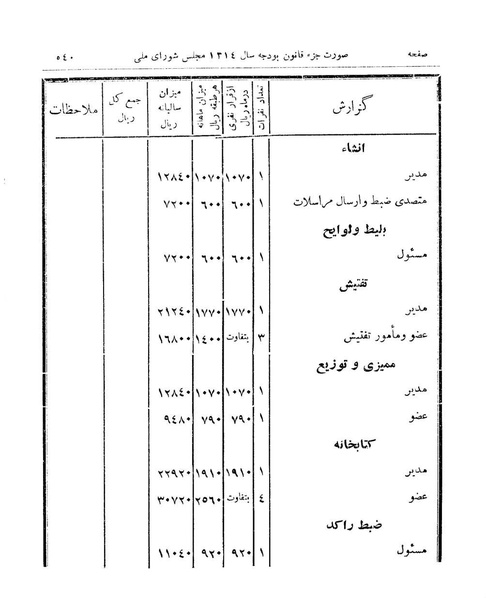 صفحه صورت جزء قانون بودجه سال ۱۳۱٤ مجلس شورای ملی ٥٤۰
گزارش تعداد نفرات ازقرار نفری درماه ریال میزان ماهانه هرطبقه ریال میزان سالیانه ریال جمع کل ریال ملاحظات
انشاء
مدیر ۱ ۱۰۷۰ ۱۰۷۰ ۱۲۸٤۰
متصدی ضبط وارسال مراسلات ۱ ٦۰۰ ٦۰۰ ۷۲۰۰
بلیط ولوایح
مسئول ۱ ٦۰۰ ٦۰۰ ۷۲۰۰
تفتیش
مدیر ۱ ۱۷۷۰ ۱۷۷۰ ۲۱۲٤۰
عضو ومأمور تفتیش ۳ بتفاوت ۱٤۰۰ ۱٦۸۰۰
ممیزی و توزیع
مدیر ۱ ۱۰۷۰ ۱۰۷۰ ۱۲۸٤۰
عضو ۱ ۷۹۰ ۷۹۰ ۹٤۸۰
کتابخانه
مدیر ۱ ۱۹۱۰ ۱۹۱۰ ۲۲۹۲۰
عضو ٤ بتفاوت ۲٥٦۰ ۳۰۷۲۰
ضبط راکد
مسئول ۱ ۹۲۰ ۹۲۰ ۱۱۰٤۰